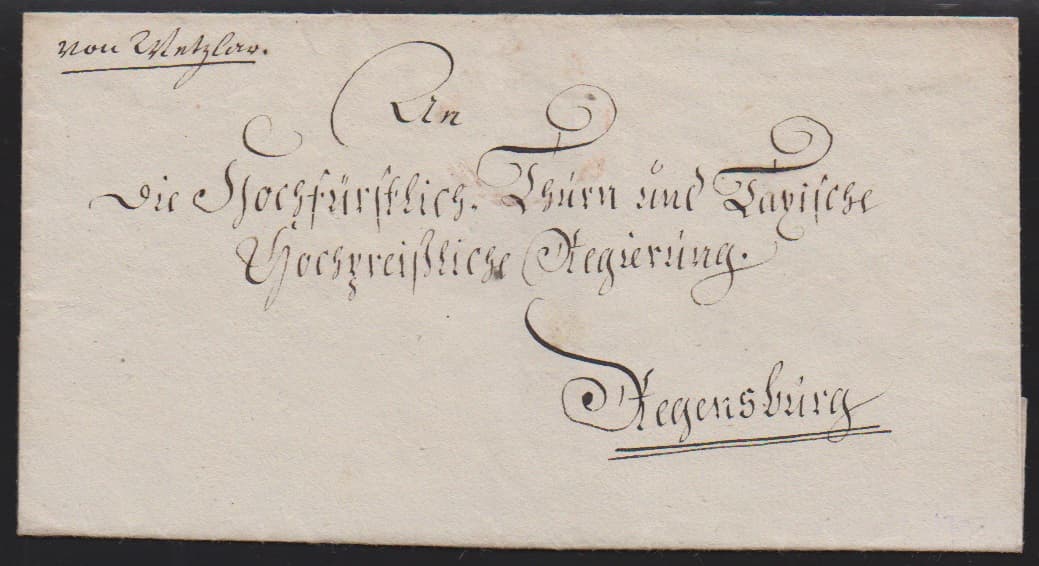 von Wetzlar.
An
die Hochfürstlich. Thurn und Taxische
Hochpreißliche Regierung.
Regensburg